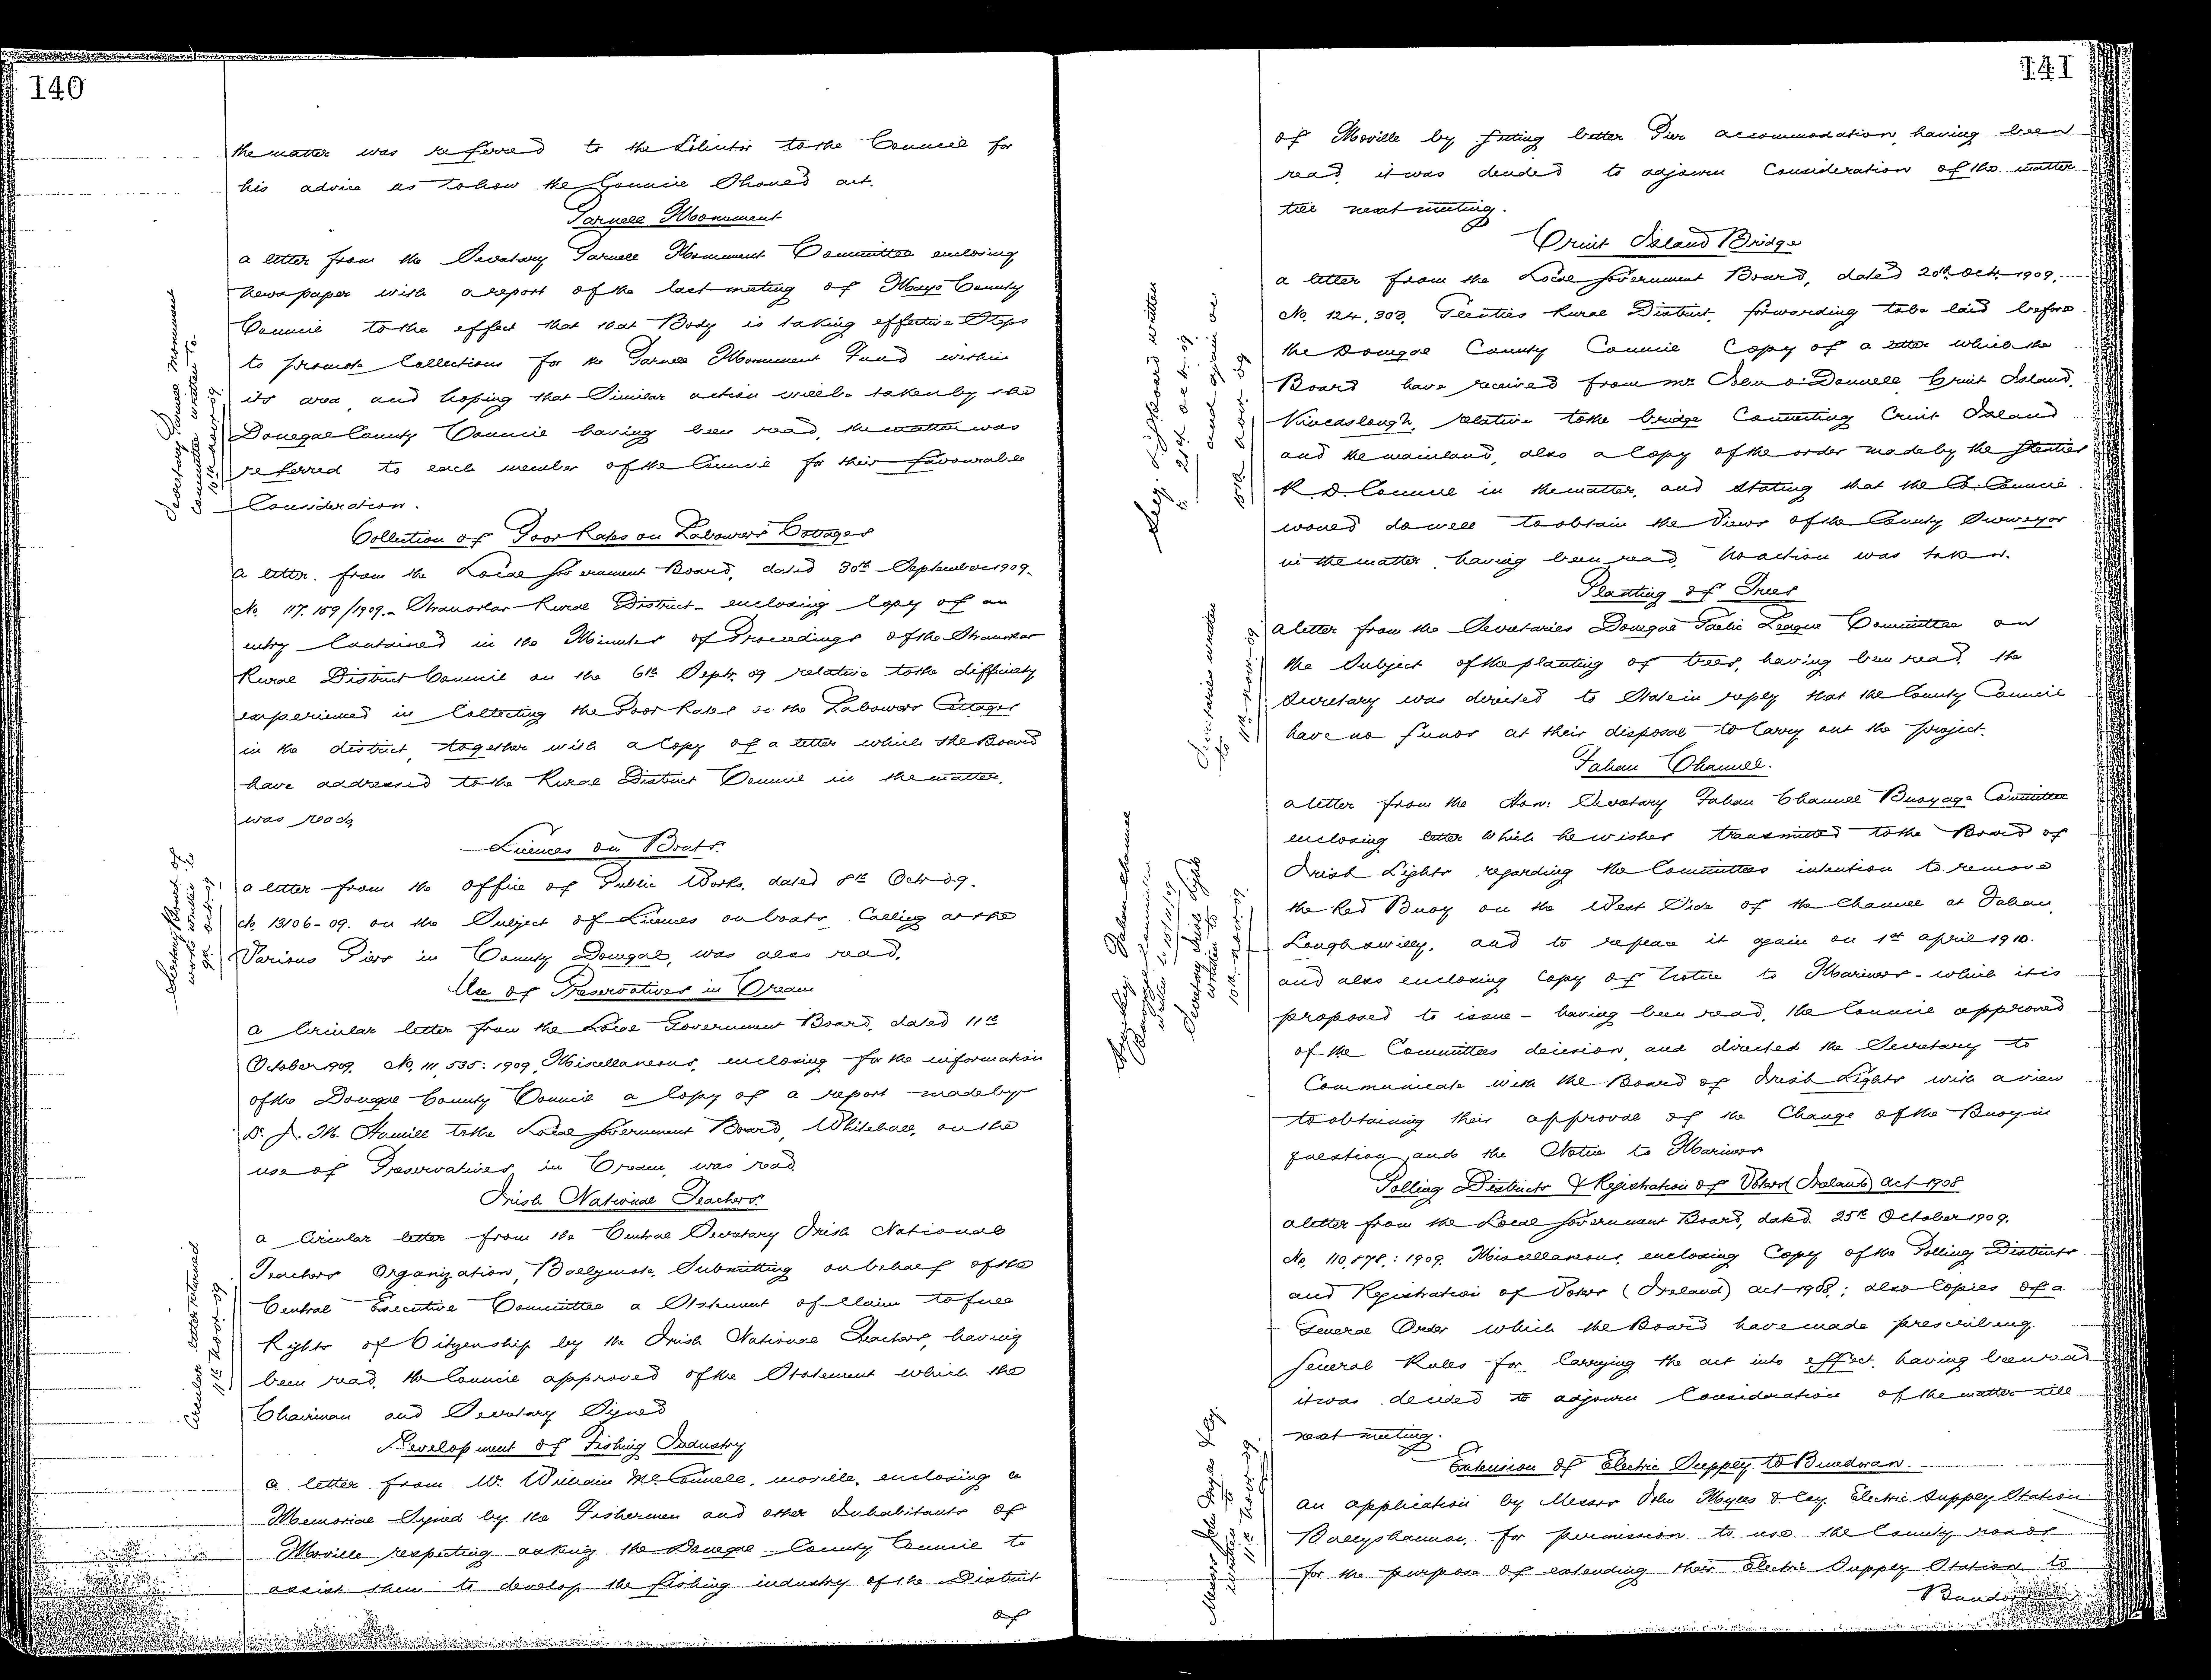 140
the matter was referred to the Solicitor to the Council for
his advice as to how the Council Should act.
Parnell Monument
a letter from the Secretary Parnell Monument Committee enclosing
newspaper with a report of the last meeting of Mayo County
Council to the effect that that Body is taking effective Steps
to promote Collections for the Parnell Monument Fund within
its area, and hoping that Similar action will be taken by the
Donegal County Council having been read, the matter was
referred to each member of the Council for their favourable
Consideration.
Secretary Parnell Monument
Committee written to.
10th Novr 09.
Collection of Poor Rates on Labourers Cottages
a letter from the Local Government Board, dated 30th September 1909.
No. 117.159/1909. - Stranorlar Rural District - enclosing Copy of an
entry Contained in the Minutes of Proceedings of the Stranorlar
Rural District Council on the 6th Sept. 09 relative to the difficulty
experienced in Collecting the Poor Rates on the Labourers Cottages
in the district, together with a Copy of a letter which the Board
have addressed to the Rural District Council in the matter,
was read.
Licences on Boats.
a letter from the Office of Public Works, dated 8th Octr 09.
No. 13106-09. on the Subject of Licences on boats Calling at the
Various Piers in County Donegal, was also read.
Secretary Board of
works written to
9th Octr. 09.
Use of Preservatives in Cream
a Circular letter from the Local Government Board, dated 11th
October 1909. No. 111,535: 1909, Miscellaneous, enclosing for the information
of the Donegal County Council a Copy of a report made by
Dr. J. M. Hamill to the Local Government Board, Whitehall, on the
use of Preservatives in Cream, was read.
Irish National Teachers.
a Circular letter from the Central Secretary Irish National
Teachers Organization, Ballymote, Submitting on behalf of the
Central Executive Committee a Statement of Claim to full
Rights of Citizenship by the Irish National Teachers, having
been read, the Council approved of the Statement which the
Chairman and Secretary Signed
Circular letter returned
11th Novr 09
Development of Fishing Industry
a letter from Mr. William McConnell, Moville, enclosing a
Memorial Signed by the Fishermen and other Inhabitants of
Moville respecting asking the Donegal County Council to
assist them to develop the fishing industry of the District
of
141
of Moville by getting better Pier accommodation, having been
read, it was decided to adjourn Consideration of the matter
till next meeting.
Cruit Island Bridge
a letter from the Local Government Board, dated 20th Oct. 1909,
No. 124,303, Glenties Rural District, forwarding to be laid before
the Donegal County Council Copy of a letter which the
Board have received from Mr O'Donnell Cruit Island,
Kincaslough, relative to the bridge Connecting Cruit Island
and the mainland, also a Copy of the order made by the Glenties
R D Council in the matter, and Stating that the Co. Council
would do well to obtain the Views of the County Surveyor
in the matter, having been read, no action was taken.
written
to 21st Oct. 09
and again on
10th Novr 09
Planting of Trees
a letter from the Secretaries Donegal Gaelic League Committee on
the Subject of the planting of trees, having been read, the
Secretary was directed to State in reply that the County Council
have no funds at their disposal to Carry out the project.
Secretaries written
to 11th Novr. 09
Fahan Channel.
a letter from the Hon: Secretary Fahan Channel Buoyage Committee
enclosing letter which he wishes transmitted to the Board of
Irish Lights regarding the Committees intention to remove
the Red Buoy on the West Side of the Channel at Fahan,
Loughswilly, and to replace it again on 1st April 1910.
and also enclosing Copy of Notice to Mariners - which it is
proposed to issue - having been read, the Council approved
of the Committees decision, and directed the Secretary to
Communicate with the Board of Irish Lights with a view
to obtaining their approval of the Change of the Buoy in
question, and the Notice to Mariners
Hon. Secy. Fahan Channel
Buoyage Committee
written to 10/11/09
Secretary Irish Lights
written to
10th Novr. 09.
Polling Districts & Registration of Voters (Ireland) Act 1908
a letter from the Local Government Board, dated 25th October 1909.
No. 110,878,: 1909. Miscellaneous, enclosing Copy of the Polling Districts
and Registration of Voters (Ireland) Act 1908,; also Copies of a
General Order which the Board have made prescribing
General Rules for Carrying the act into effect, having been read
it was decided to adjourn Consideration of the matter till
next meeting.
Extension of Electric Supply to Bundoran.
an application by Messrs John Myles & Coy. Electric Supply Station
Ballyshannon, for permission to use the County roads
for the purpose of extending their Electric Supply Station to
Messrs John Myles & Coy.
written to
11th Novr. 09.